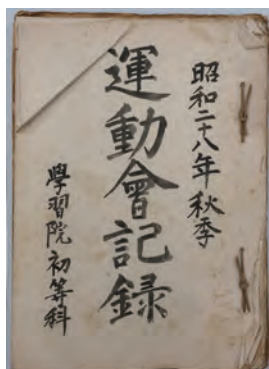 昭和二十八年秋季
運動會記録
學習院初等科